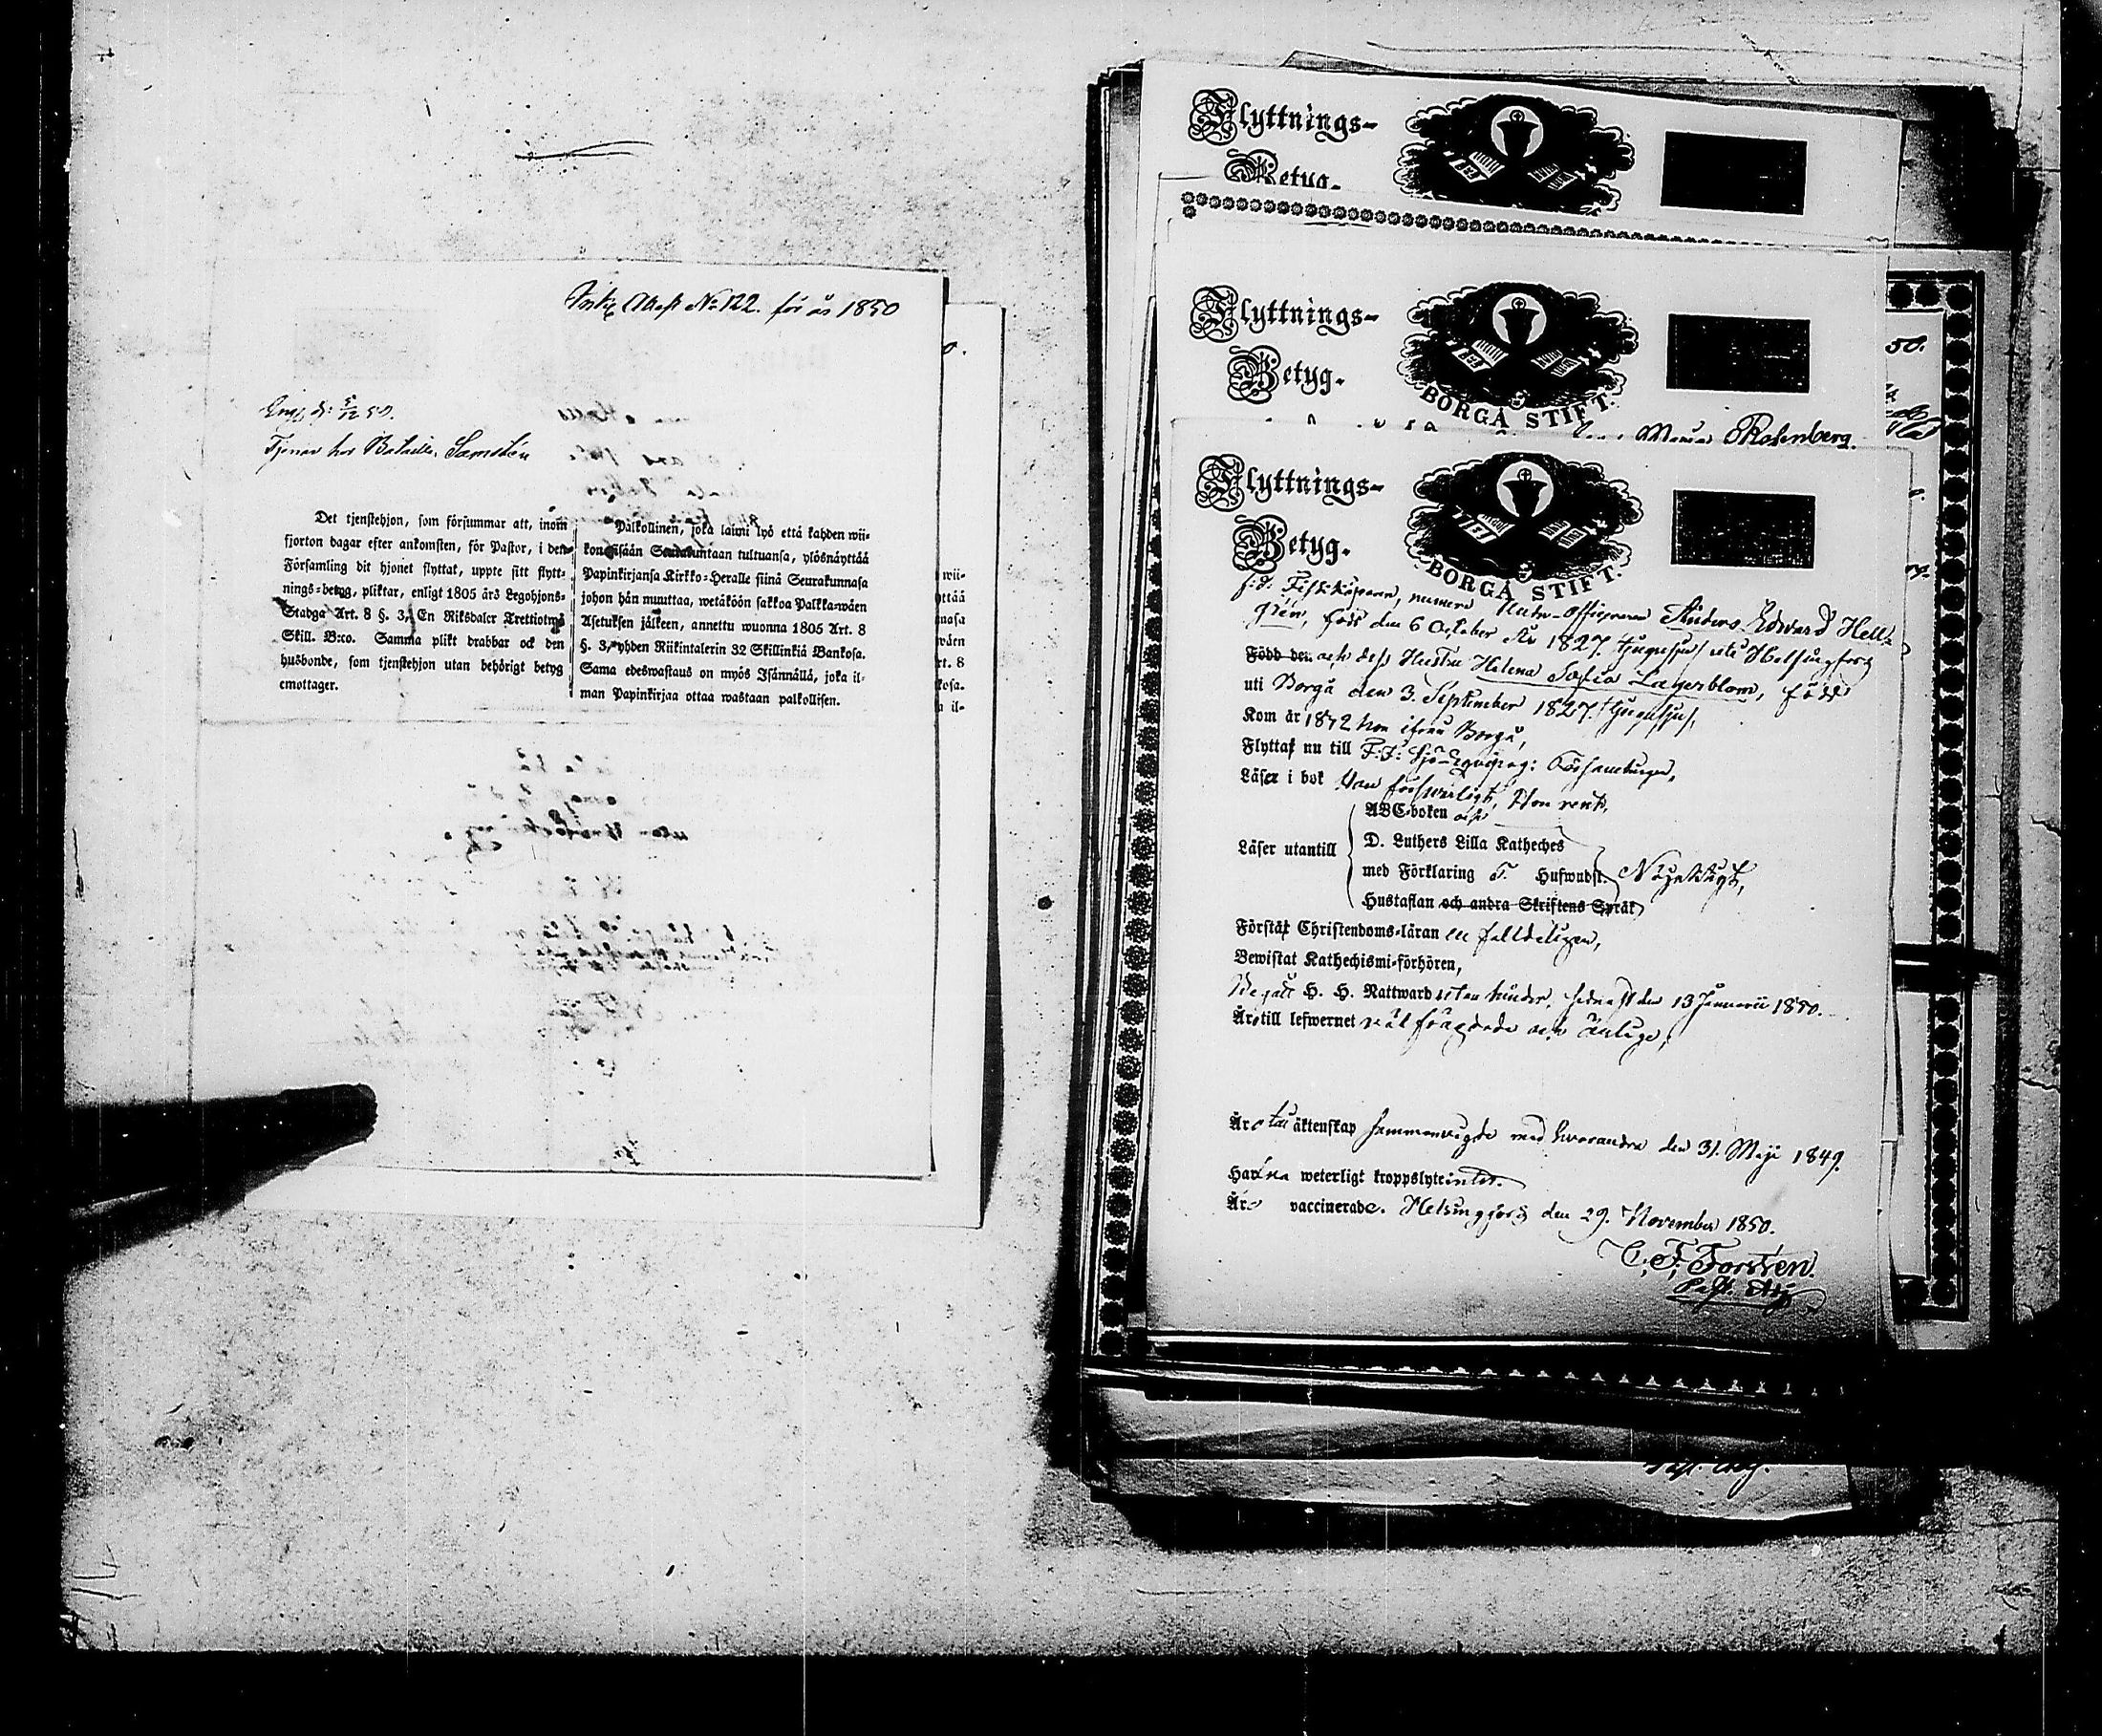 Attest No 122. för år 1850
Tjenar hos
Det tjenstehjon, som försummar att, inom
fjorton dagar efter ankomsten, för Pastor, i den
Församling dit hjonet flyttat, uppte sitt flytt-
nings-betyg, pliktar, enligt 1805 års Legohjons-
Stadga Art. 8 §. 3, En Riksdaler Trettiotwå
Skill. B:co. Samma plikt drabbar ock den
husbonde, som tjenstehjon utan behörigt betyg
emottager.
Palkollinen, joka laimi lyö että kahden wii-
konsisään Seurakuntaan tultuansa, ylösnäyttää
Papinkirjansa Kirkko-Heralle siinä Seurakunnasa
johon hän muuttaa, wetäköön sakkoa Palkka-wäen
Asetuksen jälkeen, annettu wuonna 1805 Art. 8
§. 3, yhden Riikintalerin 32 Skillinkiä Bankosa.
Sama edeswastaus on myös Isännällä, joka il-
man Papinkirjaa ottaa wastaan palkollisen.
wii-
yttää
nasa
wäen
rt. 8
kosa.
a il-
Flyttnings-
Betyg.
Flyttnings-
Betyg.
BORGÅ STIFT.
Maria Rosenberg.
50.
Flyttnings-
Betyg.
BORGÅ STIFT.
f:d: Fiskköparen, numera Under-officeraren Anders Edward Hell-
grén, född den 6 October År 1827. tjugusju uti Helsingfors
Född den och dess Hustru Helena Sofia Lagerblom, född
uti Borgå den 3. September 1827. tjugusju,
Kom år 1842 hon ifrån Borgå,
Flyttat nu till F.F: Sjö-Equipag: Församlingen,
Läser i bok Han förswarligt, Hon rent,
ABC-boken och
Läser utantill D. Luthers Lilla Kateches
med Förklaring T. Hufwudst. Nöjaktigt,
Hustaflan och andra Skriftens Språk
Förstår Christendoms-läran en
Bewistat Kathechismi-förhören,
Begått H. H. Nattward utan hinder, sednast den 13 Januarii 1850.
Äro till lefwernet wäl frägdade och ärlige,
Äro till äktenskap sammanwigde med hwarandra den 31. Maji 1849.
Hafwa weterligt kroppslyte intet.
Äro vaccinerade. Helsingfors den 29. November 1850.
C. F. Forstén.
Past. Adj.
Past. Adj.